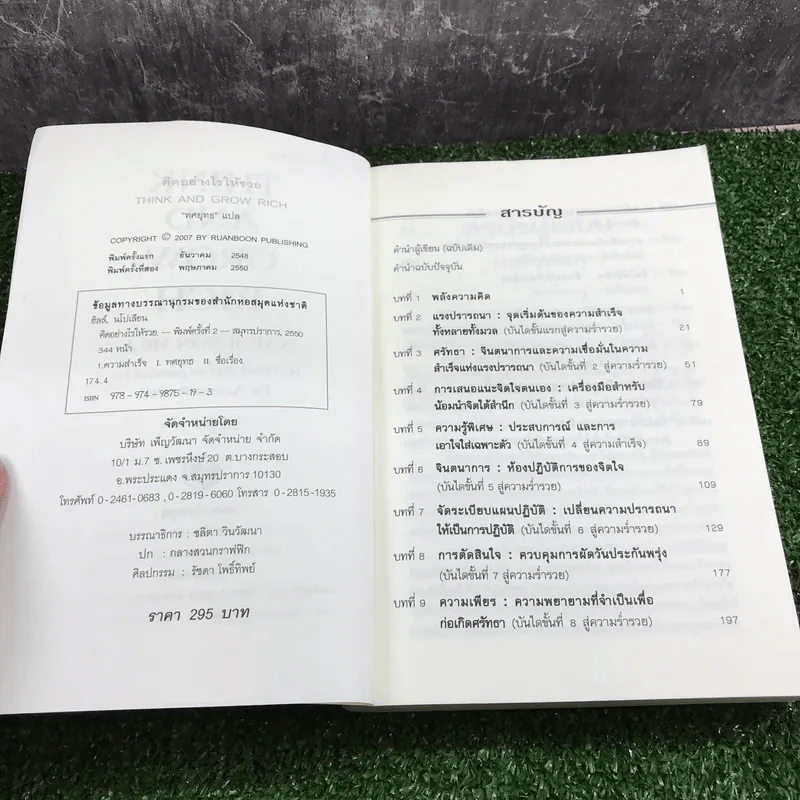 คิดอย่างไรให้รวย
THINK AND GROW RICH
"ทศยุทธ" แปล
COPYRIGHT © 2007 BY RUANBOON PUBLISHING
พิมพ์ครั้งแรก ธันวาคม 2548
พิมพ์ครั้งที่สอง พฤษภาคม 2550
ข้อมูลทางบรรณานุกรมของสำนักหอสมุดแห่งชาติ
ฮิลล์, นโปเลียน
คิดอย่างไรให้รวย. -- พิมพ์ครั้งที่ 2 -- สมุทรปราการ, 2550
344 หน้า
1.ความสำเร็จ I. ทศยุทธ II. ชื่อเรื่อง.
174.4
ISBN 978-974-9875-19-3
จัดจำหน่ายโดย
บริษัท เพ็ญวัฒนา จัดจำหน่าย จำกัด
10/1 ม.7 ซ.เพชรหึงษ์ 20 ต.บางกระสอบ
อ.พระประแดง จ.สมุทรปราการ 10130
โทรศัพท์ 0-2461-0683 , 0-2819-6060 โทรสาร 0-2815-1935
บรรณาธิการ : ชลิตา วินวัฒนา
ปก : กลางสวนกราฟฟิก
ศิลปกรรม : รัชดา โพธิ์ทิพย์
ราคา 295 บาท
สารบัญ
คำนำผู้เขียน (ฉบับเดิม)
คำนำฉบับปัจจุบัน
บทที่ 1 พลังความคิด 1
บทที่ 2 แรงปรารถนา : จุดเริ่มต้นของความสำเร็จ
ทั้งหลายทั้งมวล (บันไดขั้นแรกสู่ความร่ำรวย) 21
บทที่ 3 ศรัทธา : จินตนาการและความเชื่อมั่นในความ
สำเร็จแห่งแรงปรารถนา (บันไดขั้นที่ 2 สู่ความร่ำรวย) 51
บทที่ 4 การเสนอแนะจิตใจตนเอง : เครื่องมือสำหรับ
น้อมนำจิตใต้สำนึก (บันไดขั้นที่ 3 สู่ความร่ำรวย) 79
บทที่ 5 ความรู้พิเศษ : ประสบการณ์ และการ
เอาใจใส่เฉพาะตัว (บันไดขั้นที่ 4 สู่ความสำเร็จ) 89
บทที่ 6 จินตนาการ : ห้องปฏิบัติการของจิตใจ
(บันไดขั้นที่ 5 สู่ความร่ำรวย) 109
บทที่ 7 จัดระเบียบแผนปฏิบัติ : เปลี่ยนความปรารถนา
ให้เป็นการปฏิบัติ (บันไดขั้นที่ 6 สู่ความร่ำรวย) 129
บทที่ 8 การตัดสินใจ : ควบคุมการผัดวันประกันพรุ่ง
(บันไดขั้นที่ 7 สู่ความร่ำรวย) 177
บทที่ 9 ความเพียร : ความพยายามที่จำเป็นเพื่อ
ก่อเกิดศรัทธา (บันไดขั้นที่ 8 สู่ความร่ำรวย) 197